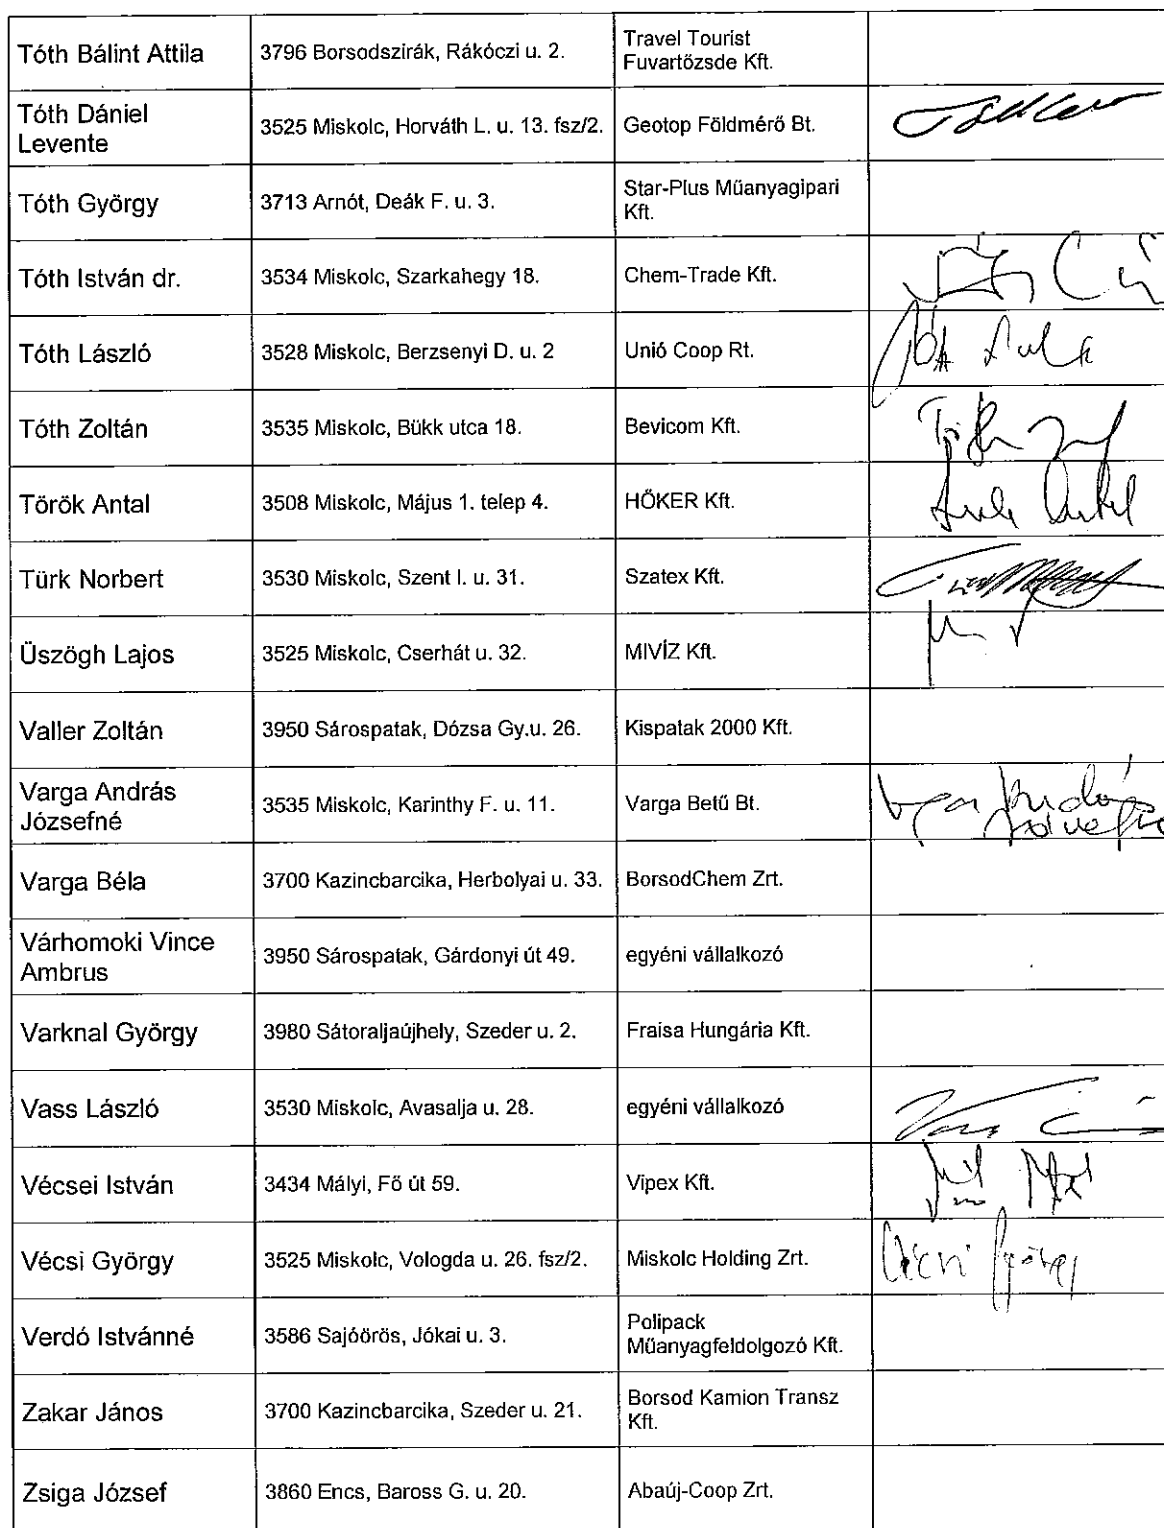 Tóth Bálint Attila
3796 Borsodszirák, Rákóczi u. 2.
Travel Tourist
Fuvartőzsde Kft.
Tóth Dániel
Levente
3525 Miskolc, Horváth L. u. 13. fsz/2.
Geotop Földmérő Bt.
Tóth György
3713 Arnót, Deák F. u. 3.
Star-Plus Műanyagipari
Kft.
Tóth István dr.
3534 Miskolc, Szarkahegy 18.
Chem-Trade Kft.
Tóth László
3528 Miskolc, Berzsenyi D. u. 2
Unió Coop Rt.
Tóth Zoltán
3535 Miskolc, Bükk utca 18.
Bevicom Kft.
Török Antal
3508 Miskolc, Május 1. telep 4.
HŐKER Kft.
Türk Norbert
3530 Miskolc, Szent I. u. 31.
Szatex Kft.
Üszögh Lajos
3525 Miskolc, Cserhát u. 32.
MIVÍZ Kft.
Valler Zoltán
3950 Sárospatak, Dózsa Gy.u. 26.
Kispatak 2000 Kft.
Varga András
Józsefné
3535 Miskolc, Karinthy F. u. 11.
Varga Betű Bt.
Varga Béla
3700 Kazincbarcika, Herbolyai u. 33.
BorsodChem Zrt.
Várhomoki Vince
Ambrus
3950 Sárospatak, Gárdonyi út 49.
egyéni vállalkozó
Varknal György
3980 Sátoraljaújhely, Szeder u. 2.
Fraisa Hungária Kft.
Vass László
3530 Miskolc, Avasalja u. 28.
egyéni vállalkozó
Vécsei István
3434 Mályi, Fő út 59.
Vipex Kft.
Vécsi György
3525 Miskolc, Vologda u. 26. fsz/2.
Miskolc Holding Zrt.
Vécsi György
Verdó Istvánné
3586 Sajóörös, Jókai u. 3.
Polipack
Műanyagfeldolgozó Kft.
Zakar János
3700 Kazincbarcika, Szeder u. 21.
Borsod Kamion Transz
Kft.
Zsiga József
3860 Encs, Baross G. u. 20.
Abaúj-Coop Zrt.